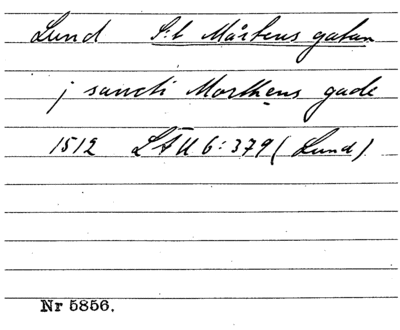 Lund S:t Mårtens gatan
j sancti Morthens gade
1512 LÄU 6:379 (Lund)
Nr 5856.